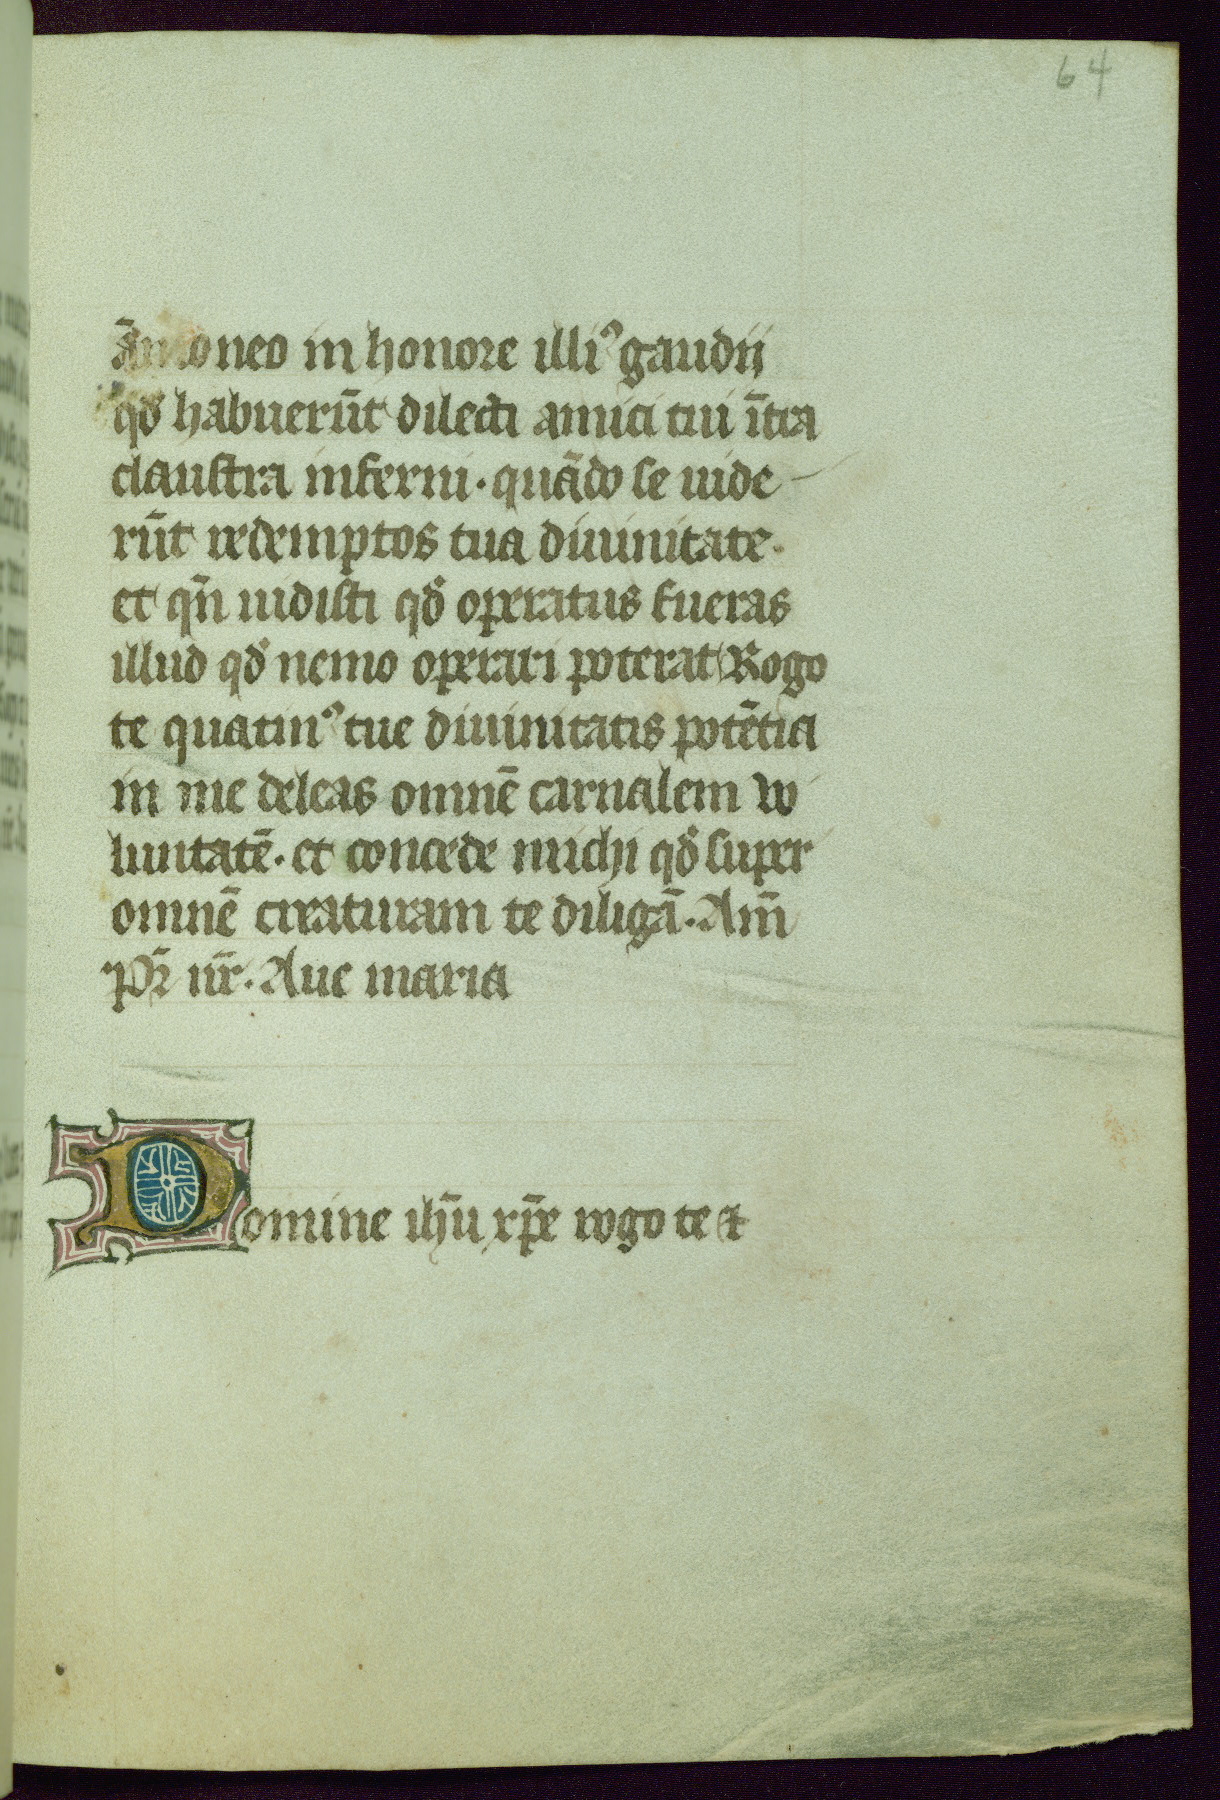 64
in honore illi⁹ gaudij
qđ habuerūt dilecti amici tui īt̄ra
claustra inferni · quādo se uide
rūt redemptos tua diuinitate ·
et qn̄ uidisti qđ operatus fueras
illud qđ nemo operari poterat Rogo
te quatin⁹ tue diuinitatis potētia
in me deleas omnē carnalem vo
luntatē · et concede michi qđ super
omnē creaturam te diligā · Am̄
Pr̄ nr̄ · Aue maria
Domine ihū xp̄e rogo te ⁊